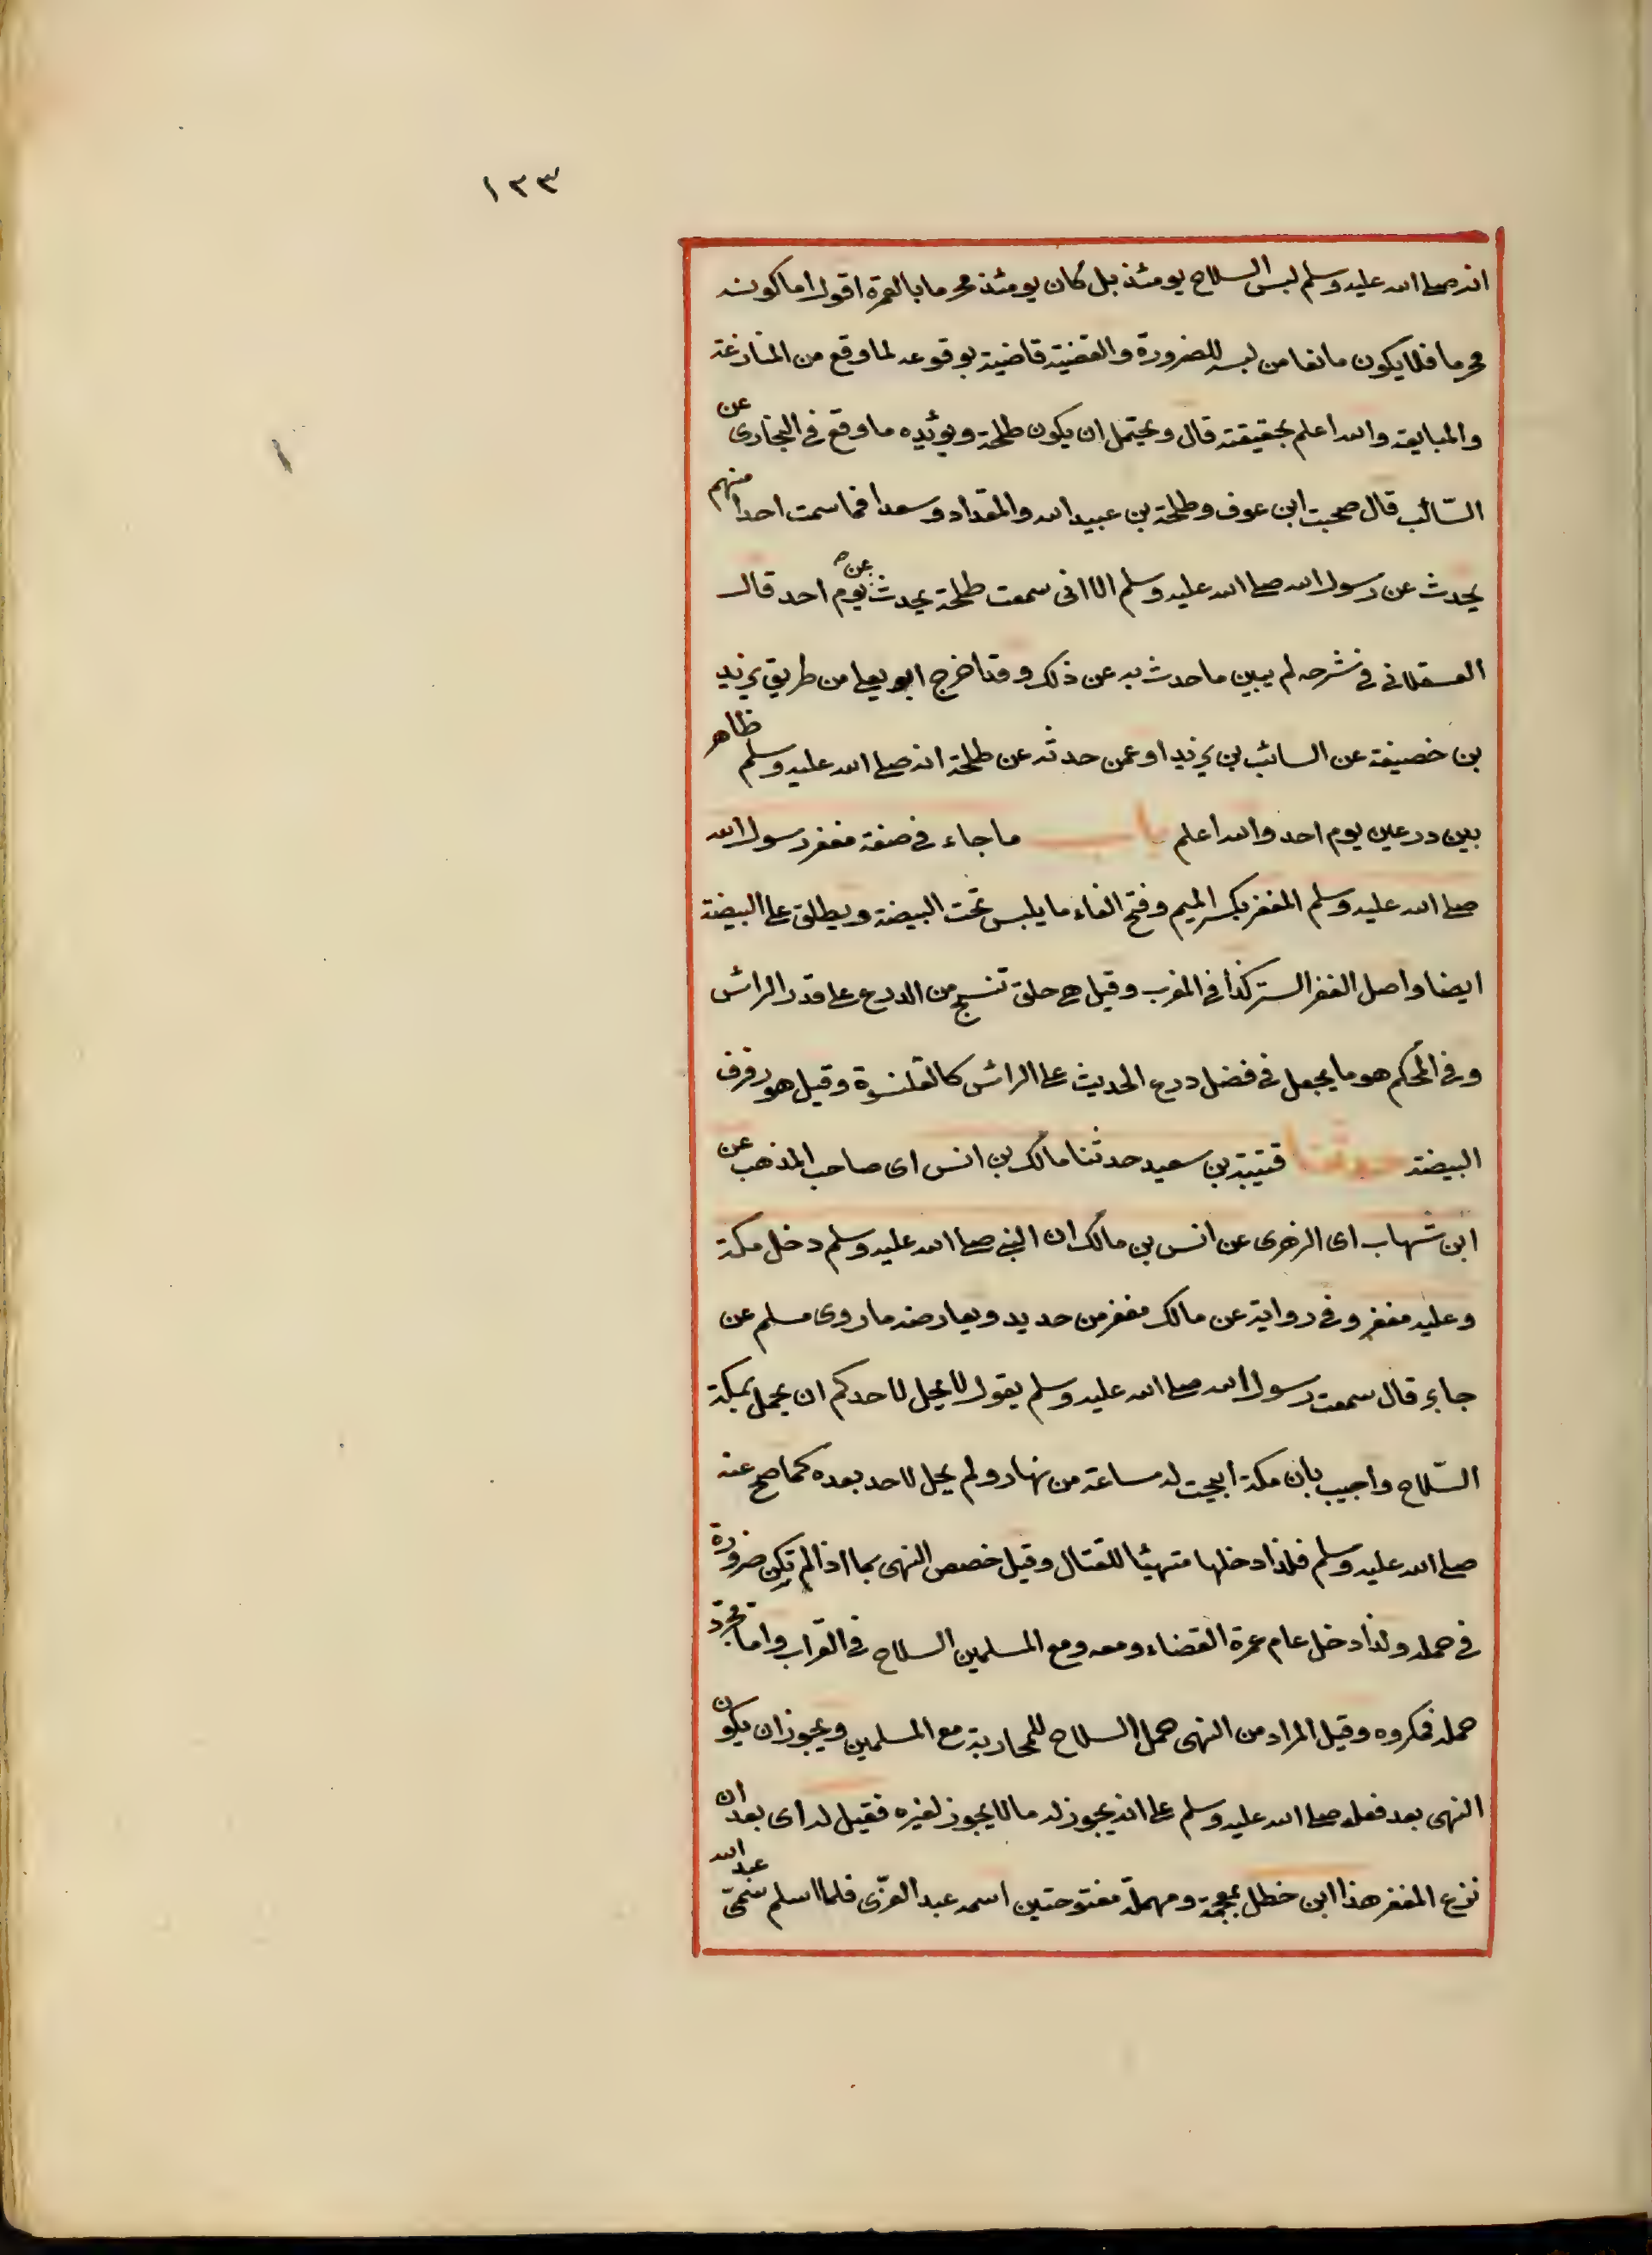 ١٣٣
انه صلى الله عليه وسلم لبس السلاح يومئذ بل كان يومئذ محرما بالعمرة اقول اما كونه
محرما فلا يكون مانعا من لبسه للضرورة والقضية قاضية بوقوعه لما وقع من المنازعة
والمبايعة والله اعلم بحقيقته قال ويحتمل ان يكون طلحة ويؤيده ما وقع فى البخارى عن
السّائب قال صحبت ابن عوف وطلحة بن عبيد الله والمقداد وسعدا فما سمت احدا منهم
يحدث عن رسول الله صلى الله عليه وسلم الا انى سمعت طلحة يحدث عن يوم احد قال
العسقلانى فى شرحه لم يبين ما حدث به عن ذلك وقد اخرج ابو يعلى من طريق يزيد
بن خصيفة عن السائب بن يزيد او عمن حدثه عن طلحة انه صلى الله عليه وسلم ظاهر
بين درعين يوم احد والله اعلم باب ما جاء فى صفة مغفر رسول الله
صلى الله عليه وسلم المغفر بكسر الميم وفتح الفاء ما يلبس تحت البيضة ويطلق على البيضة
ايضا واصل الغفر الستر كذا فى المغرب وقيل هى حلق تنسج من الدرع على قدر الرائس
وفى المحكم هو ما يجعل فى فضل درع الحديث على الرائس كالقلنسوة وقيل هو رفرف
البيضة حدثنا قتيبة بن سعيد حدثنا مالك بن انس اى صاحب المذهب عن
ابن شهاب اى الزهرى عن انس بن مالك ان النبى صلى الله عليه وسلم دخل مكة
وعليه مغفر وفى رواية عن مالك مغفر من حديد ويعارضه ما روى مسلم عن
جابر قال سمعت رسول الله صلى الله عليه وسلم يقول لا يحل لاحدكم ان يحمل بمكة
السّلاح واجيب بان مكة ابيحت له ساعة من نهار ولم يحل لاحد بعده كما صح عنه
صلى الله عليه وسلم فلذا دخلها متهيئا للقتال وقيل خصص النهى بما اذا لم تكن ضرورة
فى حمله ولذا دخل عام عمرة القضاء ومعه ومع المسلمين السلاح فى القراب واما مجرّد
حمله فمكروه وقيل المراد من النهى حمل السلاح للمحاربة مع المسلمين ويجوز ان يكون
النهى بعد فعله صلى الله عليه وسلم على انه يجوز له ما لا يجوز لغيره فقيل له اى بعد ان
نزع المغفر هذا ابن خطل بمعجمة ومهملة مفتوحتين اسمه عبد العزّى فلما اسلم سمّى عبد الله